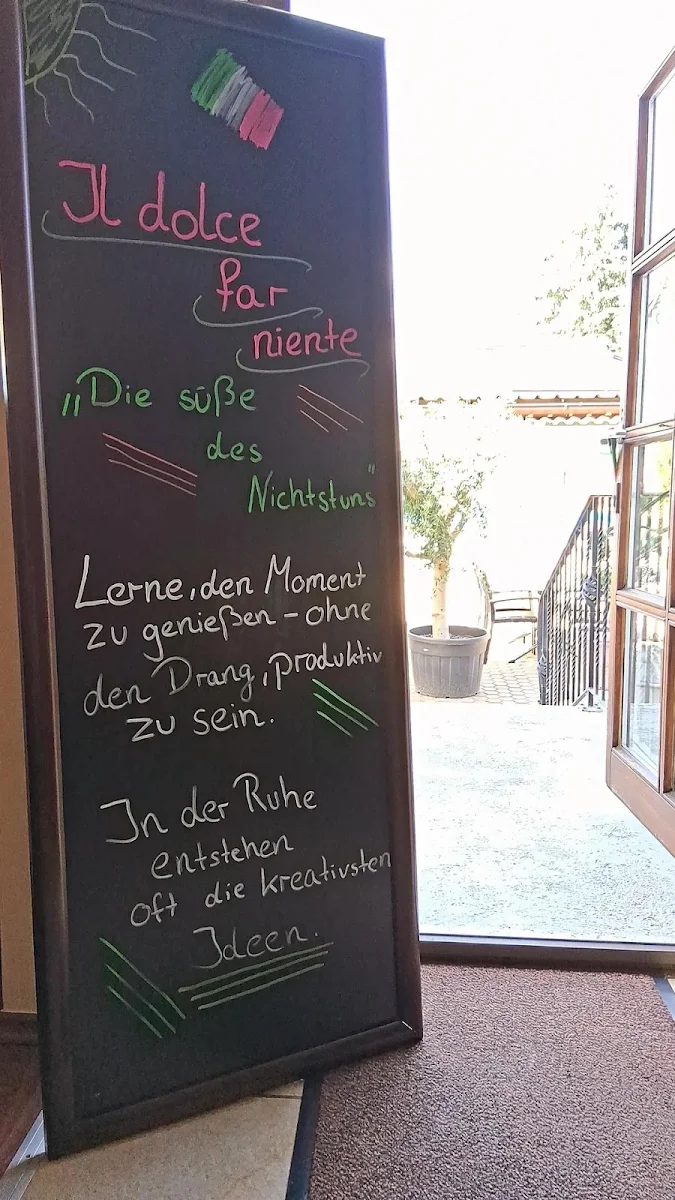 Il dolce
far
niente
„Die süße
des
Nichtstuns"
Lerne, den Moment
zu genießen - ohne
den Drang, produktiv
zu sein.
In der Ruhe
entstehen
oft die kreativsten
Ideen.